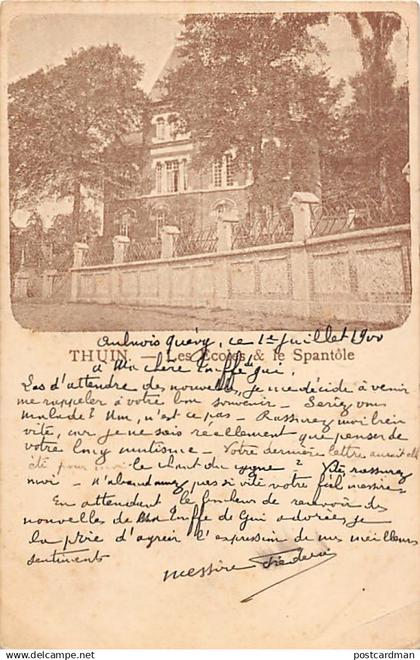 Aulnois Quévy, ce 1er Juillet 1900
THUIN. — Les Ecoles & le Spantôle
à Ma chère Touffe de Gui,
Las d'attendre des nouvelles, je me décide à venir
me rappeler à votre bon souvenir — Seriez vous
malade? Non, n'est ce pas — Rassurez moi bien
vite, car je ne sais réellement que penser de
votre long mutisme — Votre dernière lettre aurait elle
été pour moi le chant du cygne? Vite rassurez
moi — n'abandonnez pas si vite votre fidel messire —
En attendant le bonheur de recevoir des
nouvelles de Touffe de Gui adorée, je
la prie d'agréer l'expression de mes meilleurs
sentiments
messire
www.delcampe.net
postcardman